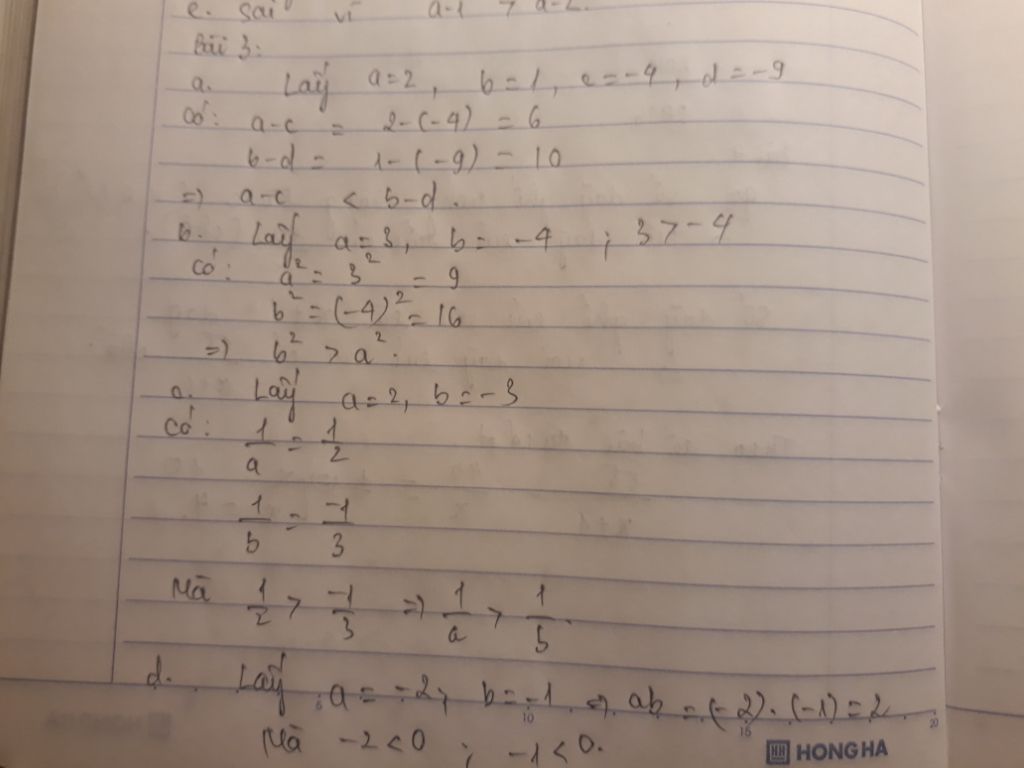 e. Sai vì a-1 > a-2.
Bài 3:
a. Lấy a=2, b=1, c=-4, d=-9
Có: a-c = 2-(-4) = 6
b-d = 1-(-9) = 10
=> a-c < b-d.
b. Lấy a=3, b=-4 ; 3>-4
Có: a² = 3² = 9
b² = (-4)² = 16
=> b² > a².
c. Lấy a=2, b=-3
Có: 1/a = 1/2
1/b = -1/3
Mà 1/2 > -1/3 => 1/a > 1/b.
d. Lấy a=-2, b=-1 => ab = (-2).(-1)=2
5 10 15 20
Mà -2<0 ; -1<0.
HH HONG HA